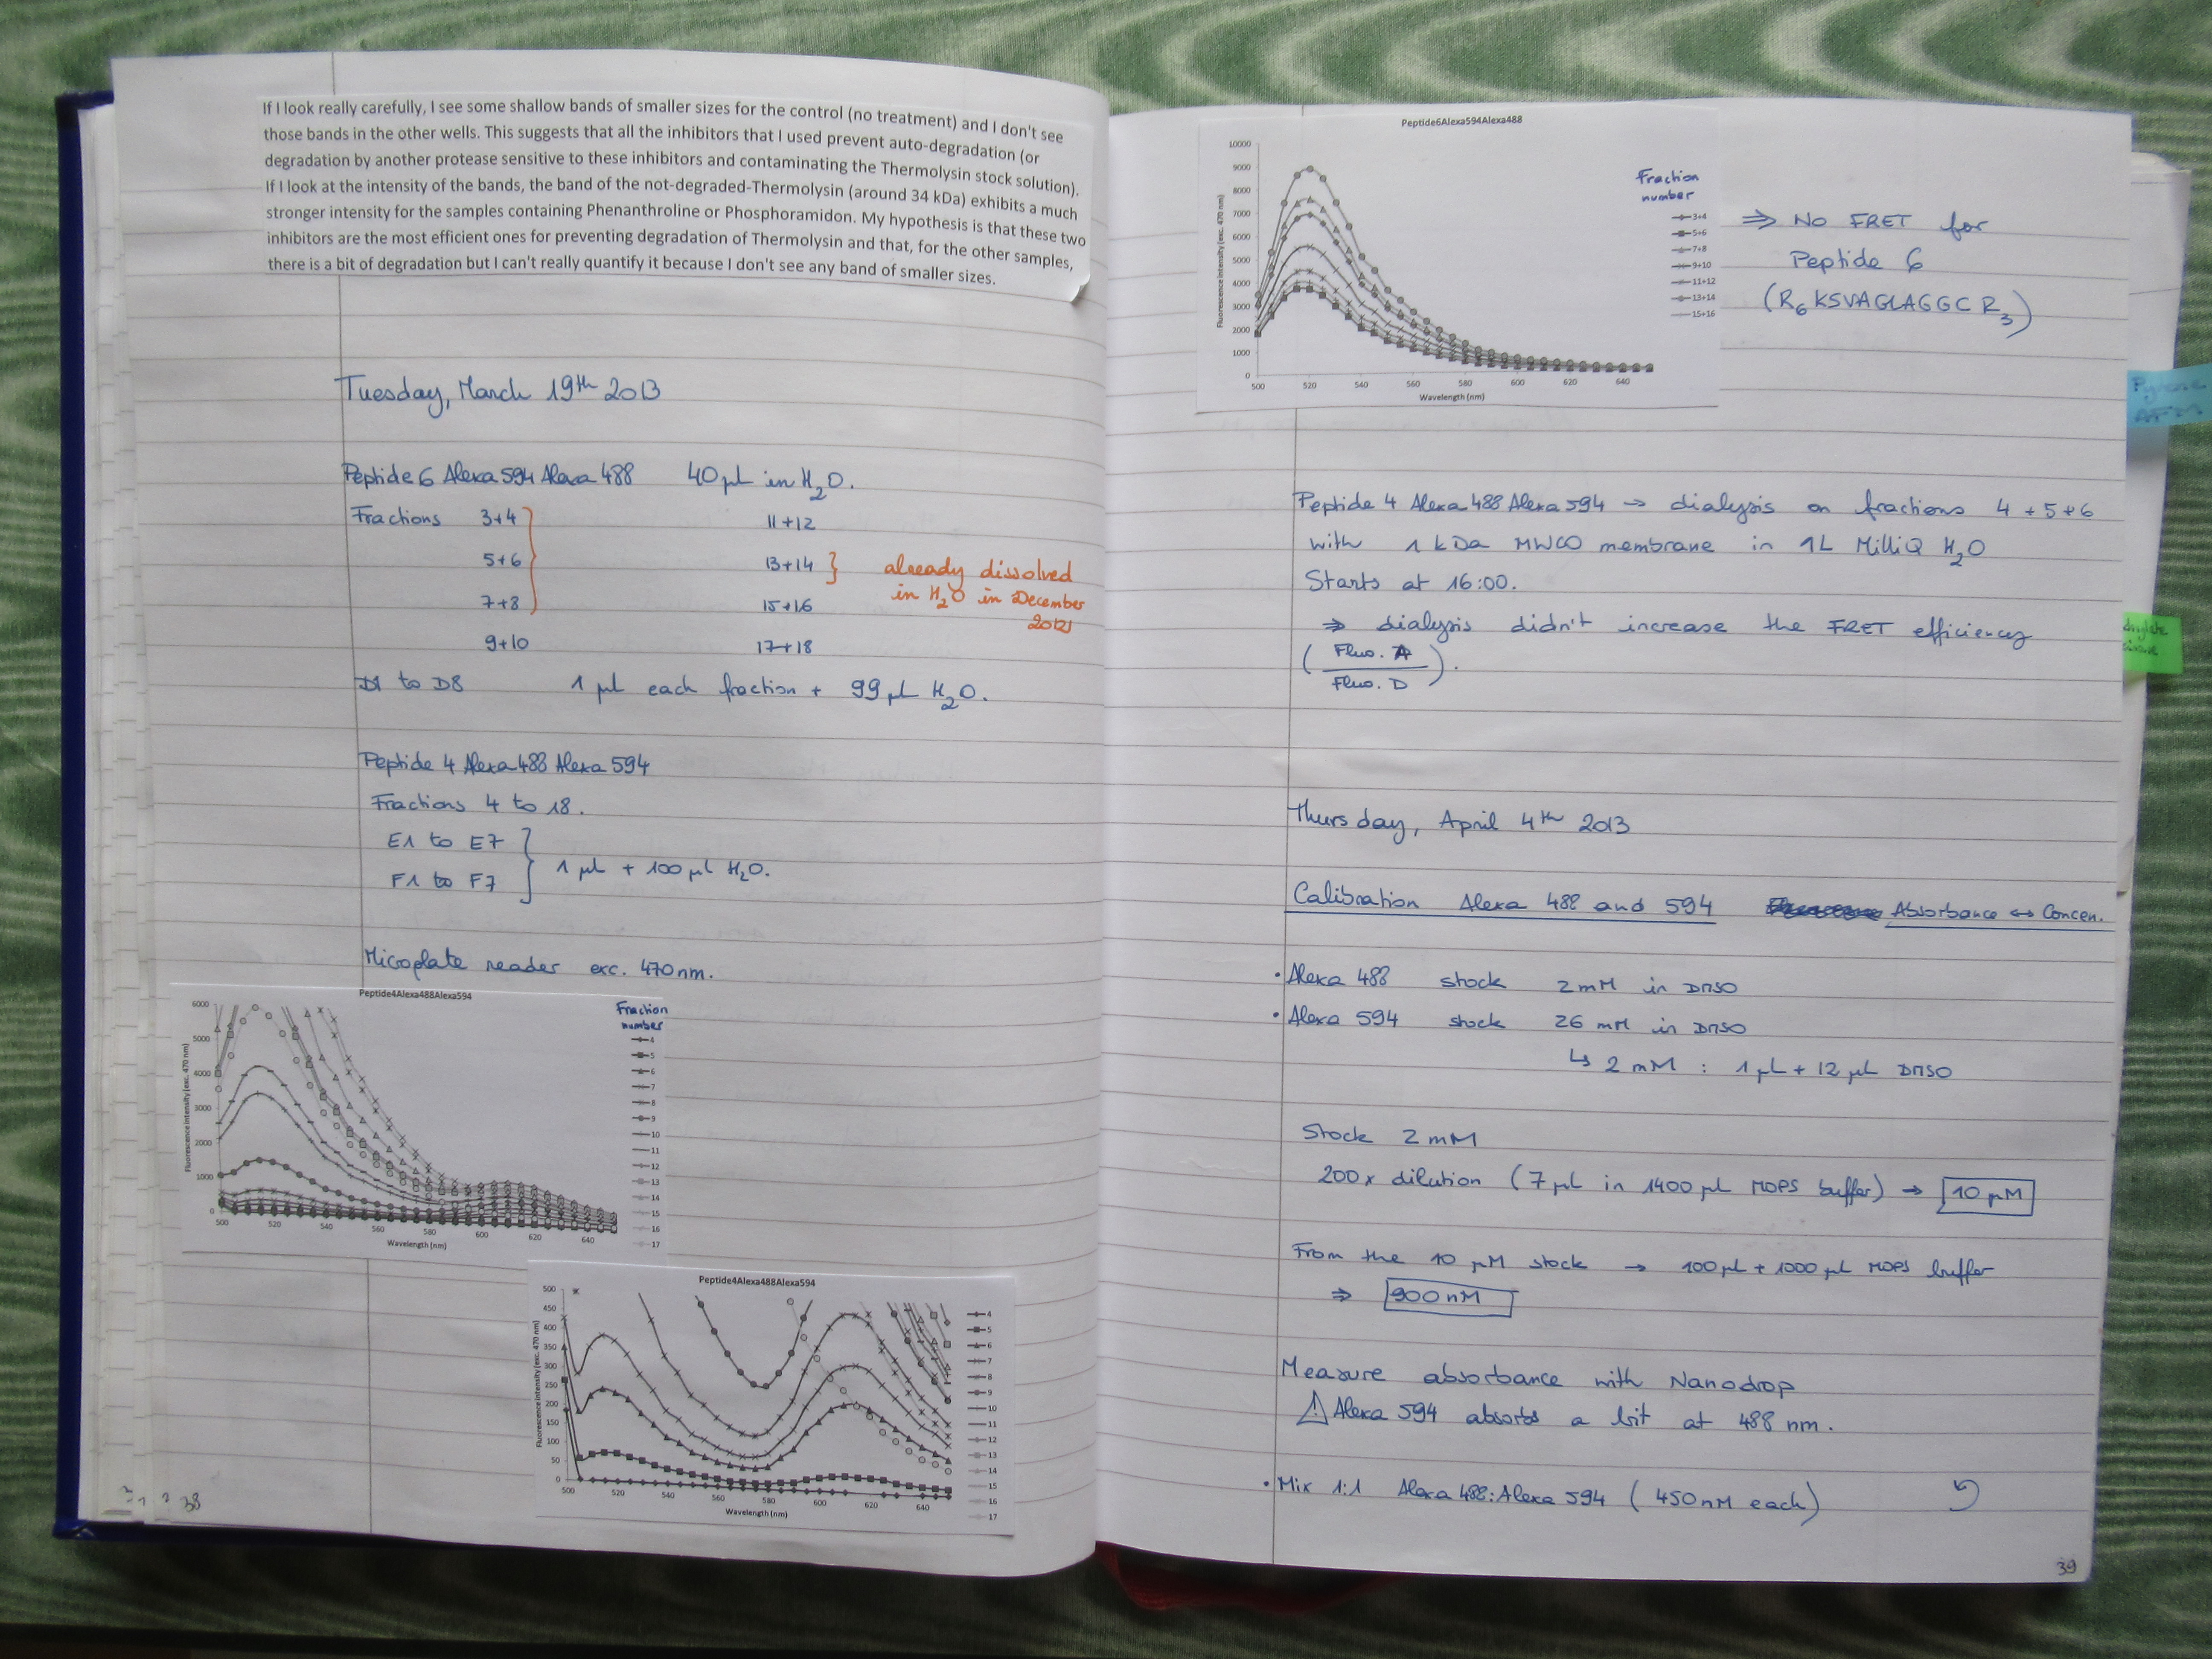 If I look really carefully, I see some shallow bands of smaller sizes for the control (no treatment) and I don't see
those bands in the other wells. This suggests that all the inhibitors that I used prevent auto-degradation (or
degradation by another protease sensitive to these inhibitors and contaminating the Thermolysin stock solution).
If I look at the intensity of the bands, the band of the not-degraded-Thermolysin (around 34 kDa) exhibits a much
stronger intensity for the samples containing Phenanthroline or Phosphoramidon. My hypothesis is that these two
inhibitors are the most efficient ones for preventing degradation of Thermolysin and that, for the other samples,
there is a bit of degradation but I can't really quantify it because I don't see any band of smaller sizes.
Tuesday, March 19th 2013
Peptide 6 Alexa 594 Alexa 488 40 µL in H2O.
Fractions 3+4 11+12
5+6 13+14 } already dissolved
in H2O in December
2012
7+8 15+16
9+10 17+18
D1 to D8 1 µL each fraction + 99 µL H2O.
Peptide 4 Alexa 488 Alexa 594
Fractions 4 to 18.
E1 to E7
F1 to F7 } 1 µL + 100 µL H2O.
Microplate reader exc. 470 nm.
Peptide4Alexa488Alexa594
Fraction
number
Fluorescence intensity (exc. 470 nm)
6000
5000
4000
3000
2000
1000
0
500 520 540 560 580 600 620 640
Wavelength (nm)
4
5
6
7
8
9
10
11
12
13
14
15
16
17
Peptide4Alexa488Alexa594
Fluorescence intensity (exc. 470 nm)
500
450
400
350
300
250
200
150
100
50
0
500 520 540 560 580 600 620 640
Wavelength (nm)
4
5
6
7
8
9
10
11
12
13
14
15
16
17
38
Peptide6Alexa594Alexa488
Fluorescence intensity (exc. 470 nm)
10000
9000
8000
7000
6000
5000
4000
3000
2000
1000
0
500 520 540 560 580 600 620 640
Wavelength (nm)
Fraction
number
3+4
5+6
7+8
9+10
11+12
13+14
15+16
⇒ NO FRET for
Peptide 6
(R6 KSVAGLAGGC R3)
Peptide 4 Alexa 488 Alexa 594 → dialysis on fractions 4+5+6
with 1 kDa MWCO membrane in 1L MilliQ H2O
Starts at 16:00.
⇒ dialysis didn't increase the FRET efficiency
(Fluo. A / Fluo. D).
Thursday, April 4th 2013
Calibration Alexa 488 and 594 Absorbance ↔ Concen.
• Alexa 488 stock 2 mM in DMSO
• Alexa 594 stock 26 mM in DMSO
↳ 2 mM : 1 µL + 12 µL DMSO
Stock 2 mM
200x dilution (7 µL in 1400 µL MOPS buffer) → 10 µM
From the 10 µM stock → 100 µL + 1000 µL MOPS buffer
⇒ 900 nM
Measure absorbance with Nanodrop
⚠ Alexa 594 absorbs a bit at 488 nm.
• Mix 1:1 Alexa 488:Alexa 594 (450 nM each)
39
AFM